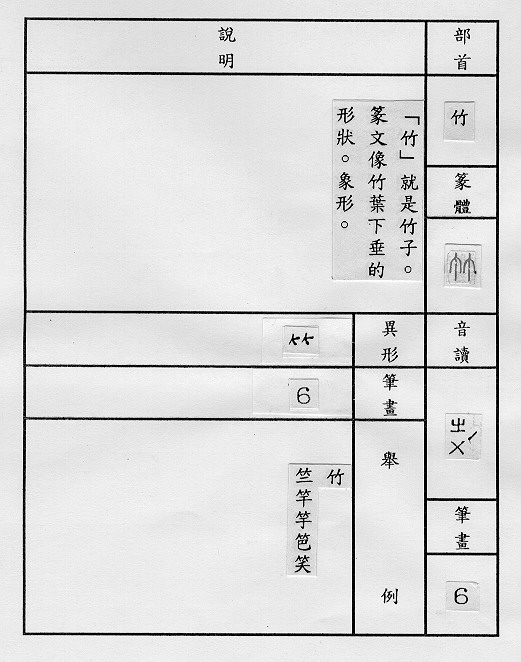 部首
竹
篆體
音讀
ㄓㄨˊ
筆畫
6
說明
「竹」就是竹子。
篆文像竹葉下垂的
形狀。象形。
異形
⺮
筆畫
6
舉例
竹
竺竿竽笆笑